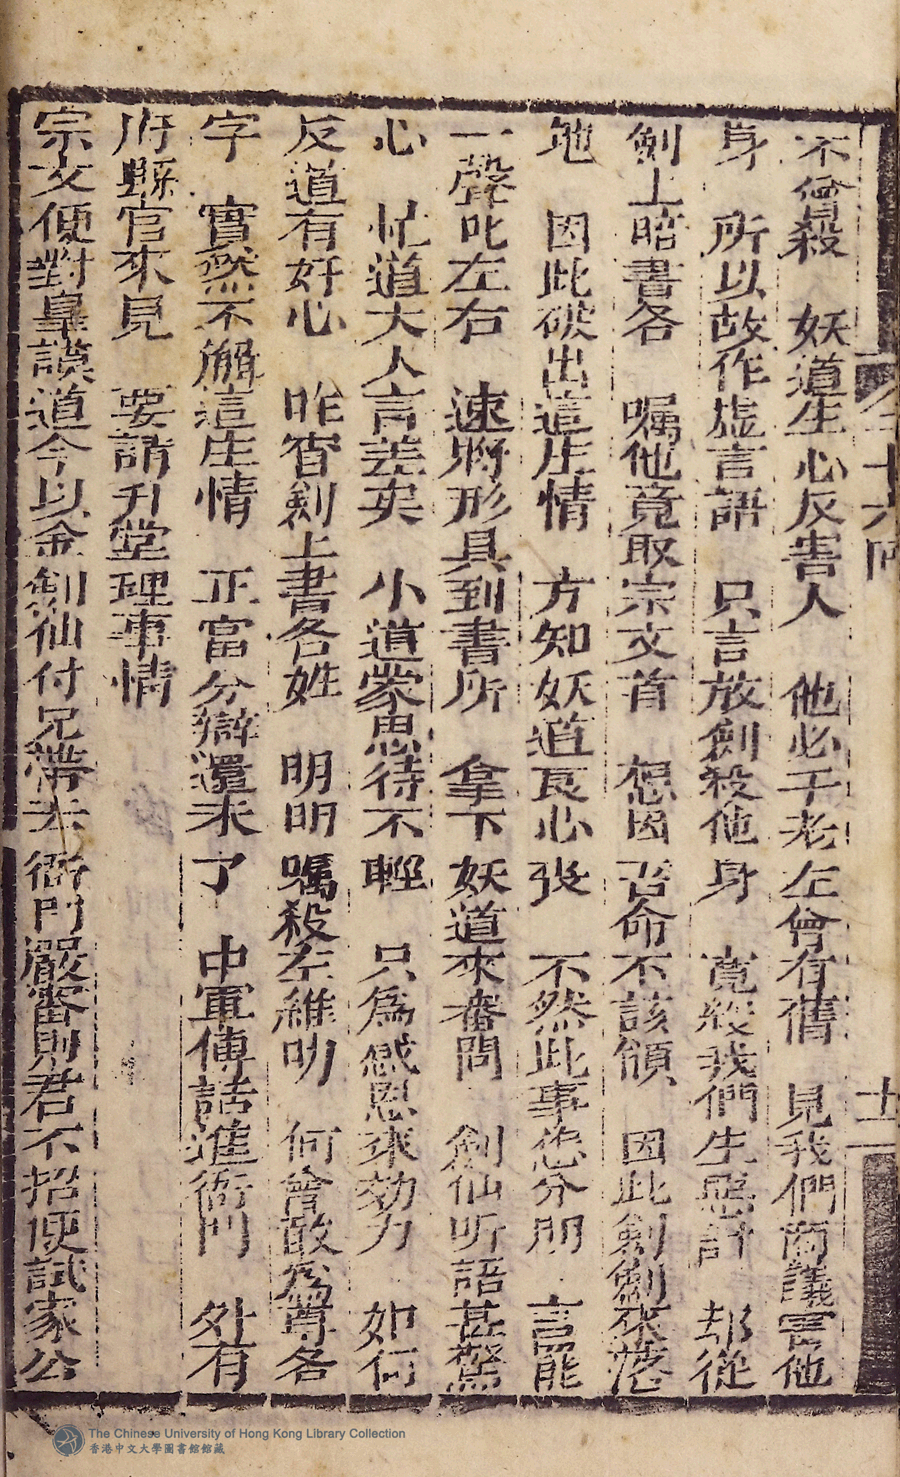 不會殺　妖道生心反害人　他必于老左會有舊　見我們商議害他
身　所以故作虛言語　只言放劍殺他身　寬緩我們生惡計　却從
劍上暗書各　嘱他竟取宗文首　想因召命不該傾　因此劍劍來落
地　因此破出這庄情　方知妖道良心丧　不然此事怎分明　言罷
一聲叱左右　速將形具到書所　拿下妖道來審問　劍仙听語甚驚
心　忙道大人言差矣　小道蒙恩待不輕　只為感恩來効力　如何
反道有奸心　昨宵劍上書各姓　明明嘱殺左維明　何曾敢寫尊各
字　實然不觧這庄情　正當分辯還未了　中軍傳話進衙門　外有
府縣官來見　要請升堂理事情
宗文便對皇謨道今以金劍仙付兄帶去衙門嚴審則君不招便試家公
全七六囬
十一
The Chinese University of Hong Kong Library Collection
香港中文大學圖書館館藏